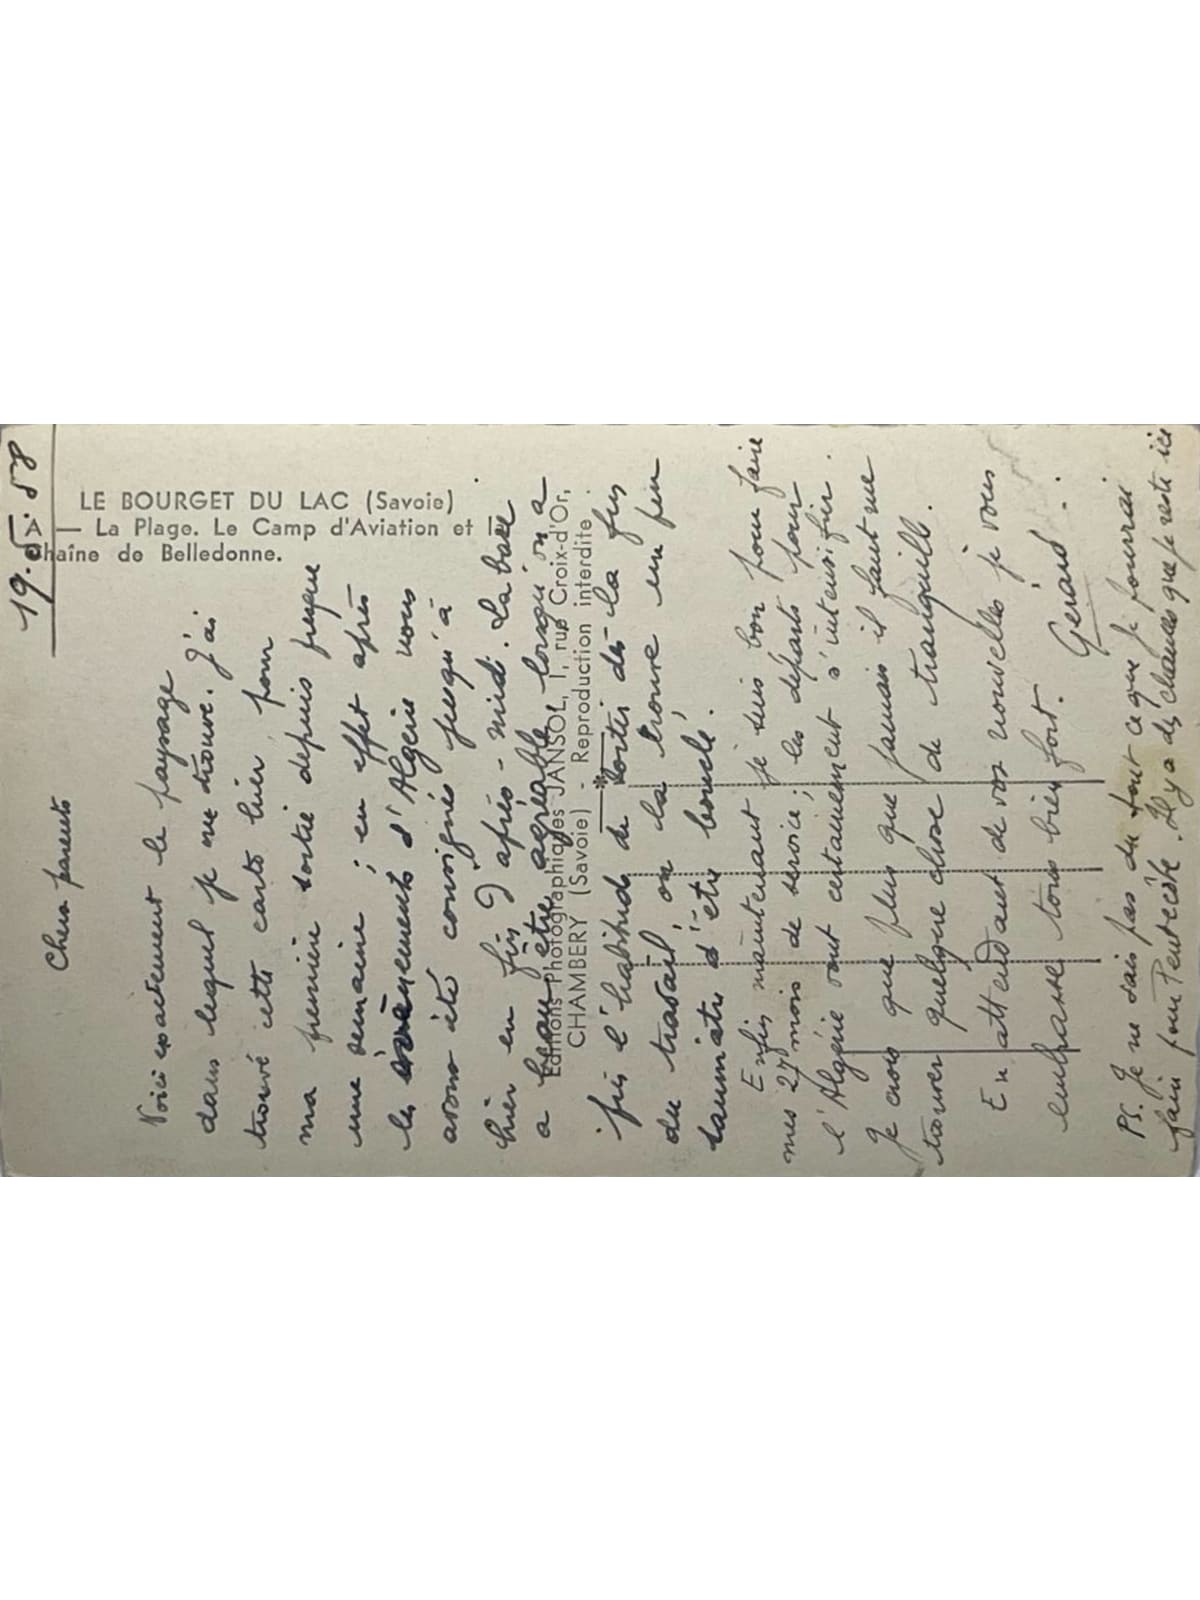 19.5.58
LE BOURGET DU LAC (Savoie)
A — La Plage. Le Camp d'Aviation et la
Chaîne de Belledonne.
Chers parents
Voici exactement le paysage
dans lequel je me trouve. J'ai
trouvé cette carte hier pour
ma première sortie depuis presque
une semaine ; en effet après
les évènements d'Algérie nous
avons été consignés jusqu'à
hier en fin d'après-midi. La base
a beau être agréable lorsqu'on a
pris l'habitude de sortir dès la fin
du travail, on la trouve un peu
saumâtre d'être bouclé.
Enfin maintenant je suis bon pour faire
mes 27 mois de service ; les départs pour
l'Algérie vont certainement s'intensifier.
Je crois que plus que jamais il faut me
trouver quelque chose de tranquille.
En attendant de vos nouvelles je vous
embrasse tous bien fort.
Gérard.
PS. Je ne sais pas du tout ce que je pourrai
faire pour Pentecôte. Il y a des chances que je reste ici
Editions Photographiques JANSOL, 1, rue Croix-d'Or,
CHAMBERY (Savoie) - Reproduction interdite